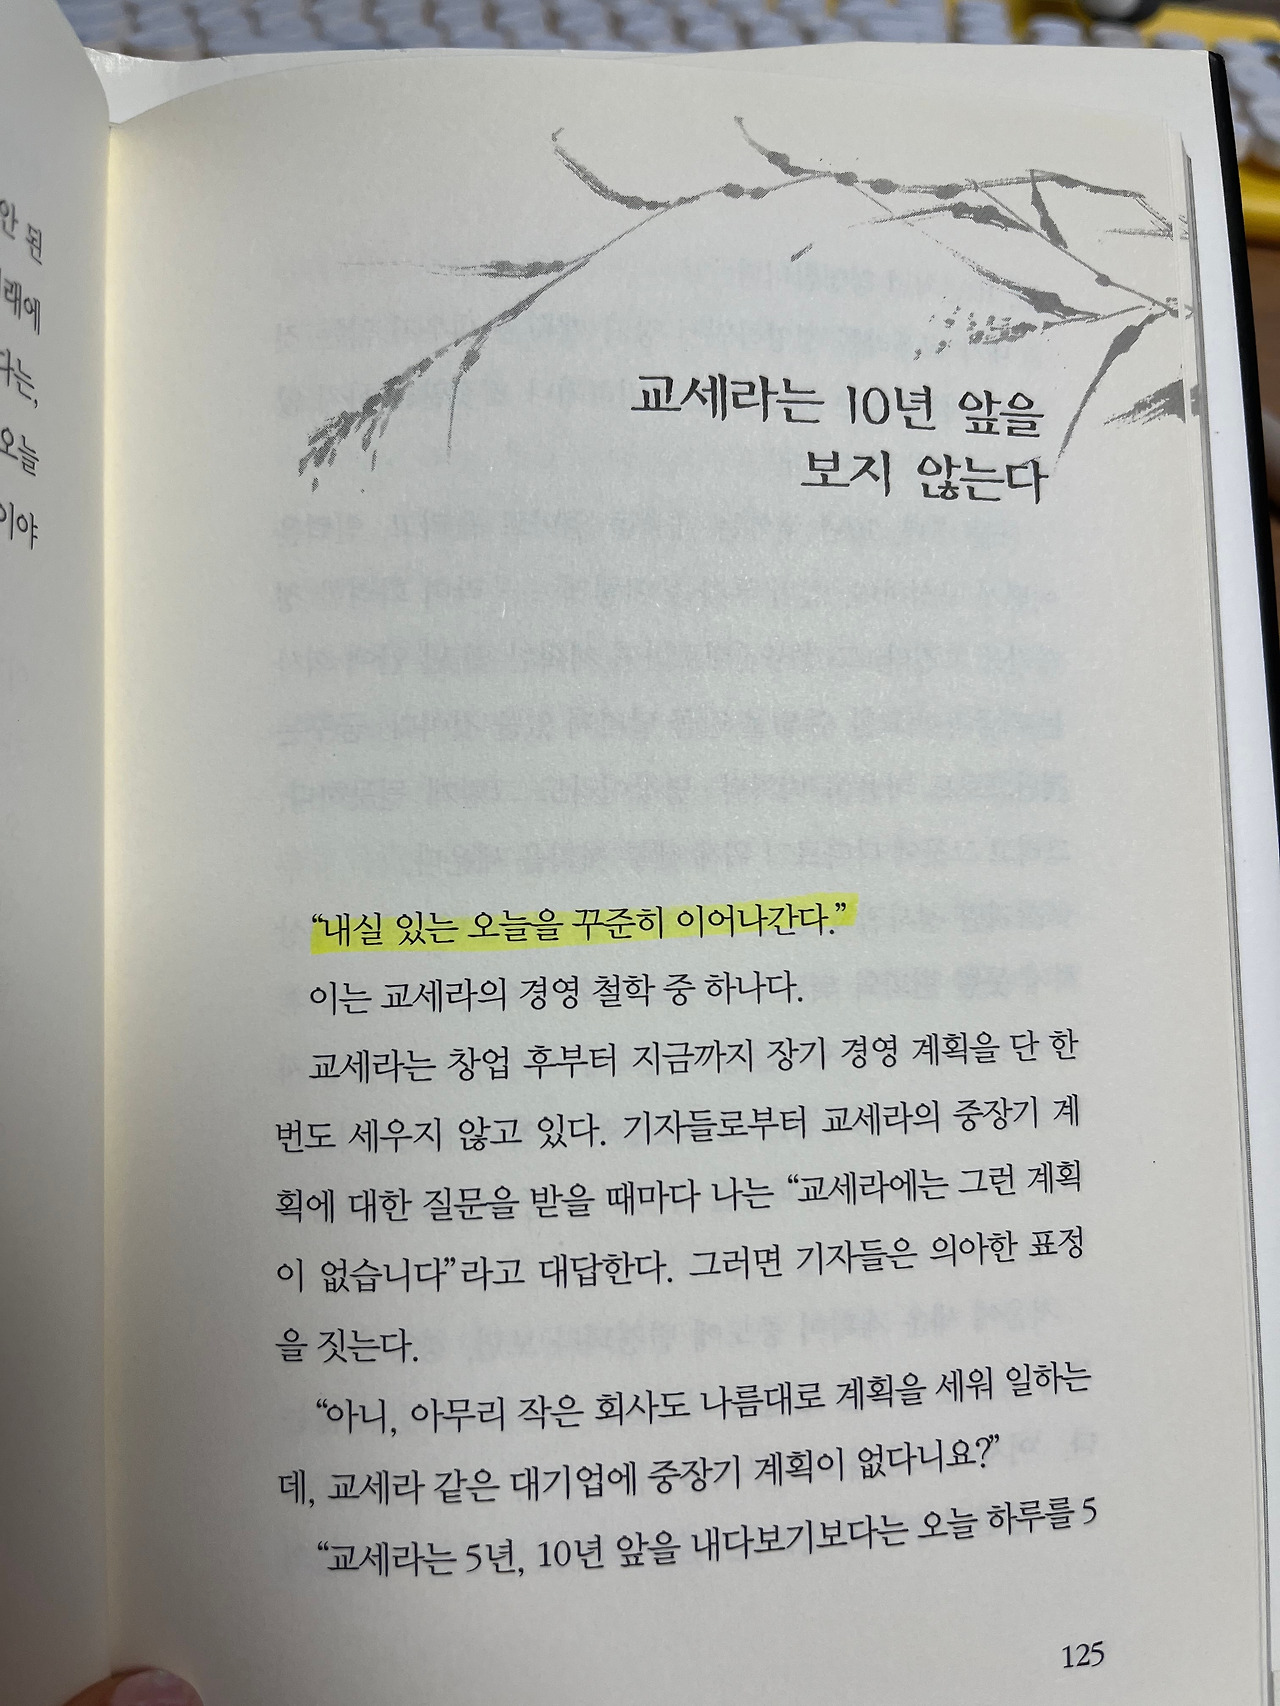 안 된
래에
다는,
오늘
이야
교세라는 10년 앞을
보지 않는다
“내실 있는 오늘을 꾸준히 이어나간다.”
이는 교세라의 경영 철학 중 하나다.
교세라는 창업 후부터 지금까지 장기 경영 계획을 단 한
번도 세우지 않고 있다. 기자들로부터 교세라의 중장기 계
획에 대한 질문을 받을 때마다 나는 “교세라에는 그런 계획
이 없습니다”라고 대답한다. 그러면 기자들은 의아한 표정
을 짓는다.
“아니, 아무리 작은 회사도 나름대로 계획을 세워 일하는
데, 교세라 같은 대기업에 중장기 계획이 없다니요?”
“교세라는 5년, 10년 앞을 내다보기보다는 오늘 하루를 5
125